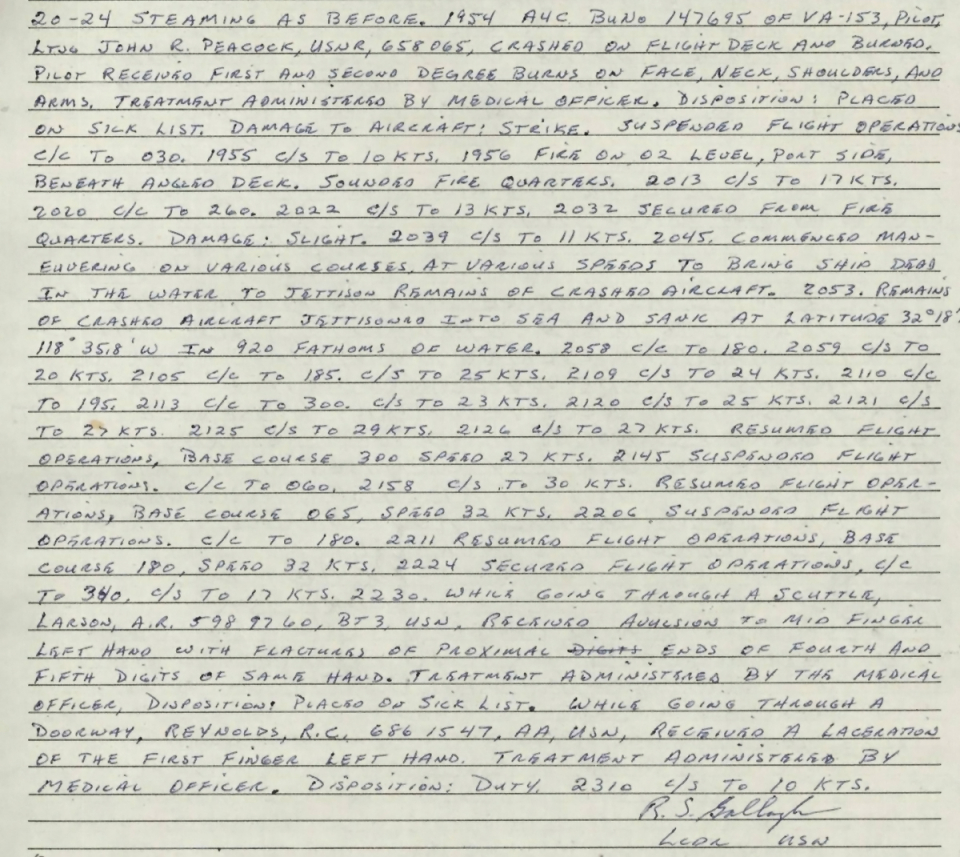 20-24 STEAMING AS BEFORE. 1954 A4C BUNO 147695 OF VA-153, PILOT,
LTJG JOHN R. PEACOCK, USNR, 658065, CRASHED ON FLIGHT DECK AND BURNED.
PILOT RECEIVED FIRST AND SECOND DEGREE BURNS ON FACE, NECK, SHOULDERS, AND
ARMS. TREATMENT ADMINISTERED BY MEDICAL OFFICER. DISPOSITION: PLACED
ON SICK LIST. DAMAGE TO AIRCRAFT: STRIKE. SUSPENDED FLIGHT OPERATIONS
C/C TO 030. 1955 C/S TO 10 KTS. 1956 FIRE ON 02 LEVEL, PORT SIDE,
BENEATH ANGLED DECK. SOUNDED FIRE QUARTERS. 2013 C/S TO 17 KTS.
2020 C/C TO 260. 2022 C/S TO 13 KTS. 2032 SECURED FROM FIRE
QUARTERS. DAMAGE: SLIGHT. 2039 C/S TO 11 KTS. 2045. COMMENCED MAN-
EUVERING ON VARIOUS COURSES, AT VARIOUS SPEEDS TO BRING SHIP DEAD
IN THE WATER TO JETTISON REMAINS OF CRASHED AIRCRAFT. 2053. REMAINS
OF CRASHED AIRCRAFT JETTISONED INTO SEA AND SANK AT LATITUDE 32°18'
118° 35.8'W IN 920 FATHOMS OF WATER. 2058 C/C TO 180. 2059 C/S TO
20 KTS. 2105 C/C TO 185. C/S TO 25 KTS. 2109 C/S TO 24 KTS. 2110 C/C
TO 195. 2113 C/C TO 300. C/S TO 23 KTS. 2120 C/S TO 25 KTS. 2121 C/S
TO 27 KTS. 2125 C/S TO 29 KTS. 2126 C/S TO 27 KTS. RESUMED FLIGHT
OPERATIONS, BASE COURSE 300 SPEED 27 KTS. 2145 SUSPENDED FLIGHT
OPERATIONS. C/C TO 060. 2158 C/S TO 30 KTS. RESUMED FLIGHT OPER-
ATIONS, BASE COURSE 065, SPEED 32 KTS. 2206 SUSPENDED FLIGHT
OPERATIONS. C/C TO 180. 2211 RESUMED FLIGHT OPERATIONS, BASE
COURSE 180, SPEED 32 KTS. 2224 SECURED FLIGHT OPERATIONS, C/C
TO 340. C/S TO 17 KTS. 2230. WHILE GOING THROUGH A SCUTTLE,
LARSON, A.R. 598 9760, BT3, USN, RECEIVED AVULSION TO MID FINGER
LEFT HAND WITH FLACTURES OF PROXIMAL DIGITS ENDS OF FOURTH AND
FIFTH DIGITS OF SAME HAND. TREATMENT ADMINISTERED BY THE MEDICAL
OFFICER, DISPOSITION: PLACED ON SICK LIST. WHILE GOING THROUGH A
DOORWAY, REYNOLDS, R.C. 686 1547, AA, USN, RECEIVED A LACERATION
OF THE FIRST FINGER LEFT HAND. TREATMENT ADMINISTERED BY
MEDICAL OFFICER. DISPOSITION: DUTY. 2310 C/S TO 10 KTS.
R. S. Gallagh
LCDR USN